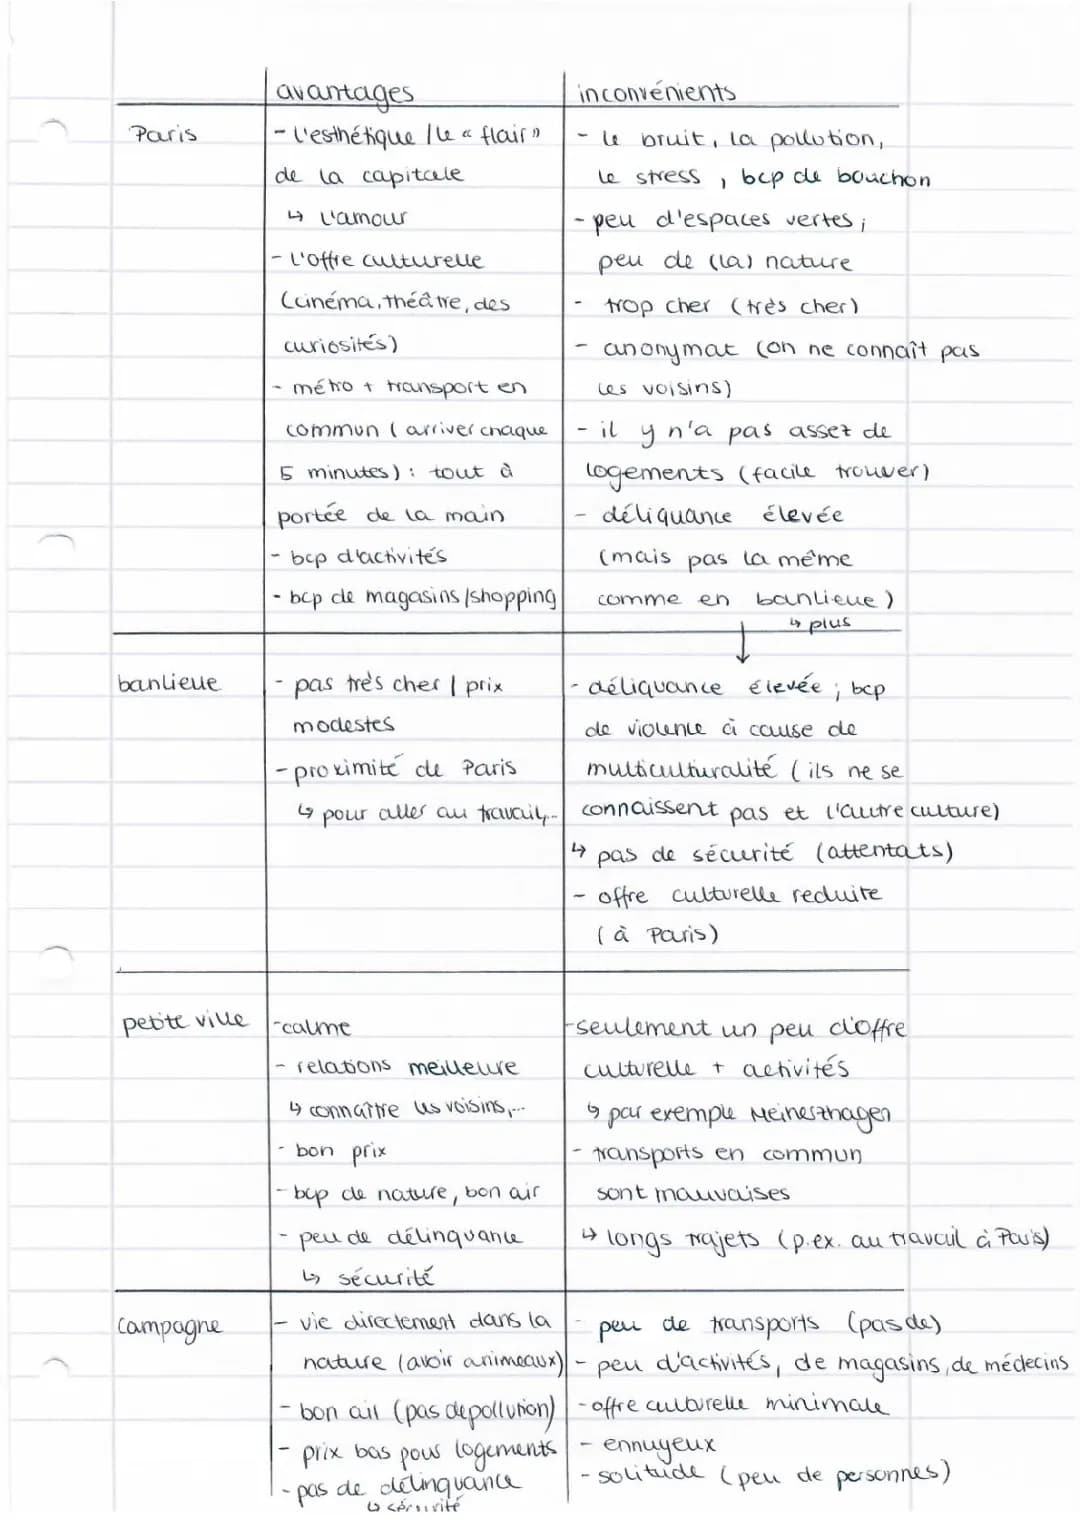 avantages
inconvénients
Paris
- l'esthétique / le « flair »
de la capitale
↳ l'amour
- l'offre culturelle
(cinéma, théâtre, des
curiosités)
- métro + transport en
commun ( arriver chaque
5 minutes) : tout à
portée de la main
- bcp d'activités
- bcp de magasins /shopping
- le bruit, la pollution,
le stress , bcp de bouchon
- peu d'espaces vertes ;
peu de (la) nature
- trop cher (très cher)
- anonymat (on ne connaît pas
les voisins)
- il y n'a pas assez de
logements (facile trouver)
- déliquance élevée
(mais pas la même
comme en banlieue )
↳ plus
banlieue
- pas très cher / prix
modestes
- proximité de Paris
↳ pour aller au travail,...
- déliquance élevée ; bcp
de violence à cause de
multiculturalité (ils ne se
connaissent pas et l'autre culture)
↳ pas de sécurité (attentats)
- offre culturelle reduite
( à Paris)
petite ville
- calme
- relations meilleure
↳ connaître les voisins,...
- bon prix
- bcp de nature, bon air
- peu de délinquance
↳ sécurité
- seulement un peu d'offre
culturelle + activités
↳ par exemple Meinerzhagen
- transports en commun
sont mauvaises
↳ longs trajets (p.ex. au travail à Paris)
campagne
- vie directement dans la
nature (avoir animeaux)
- bon air (pas de pollution)
- prix bas pour logements
- pas de délinquance
↳ sécurité
- peu de transports (pas de)
- peu d'activités, de magasins, de médecins
- offre culturelle minimale
- ennuyeux
- solitude (peu de personnes)